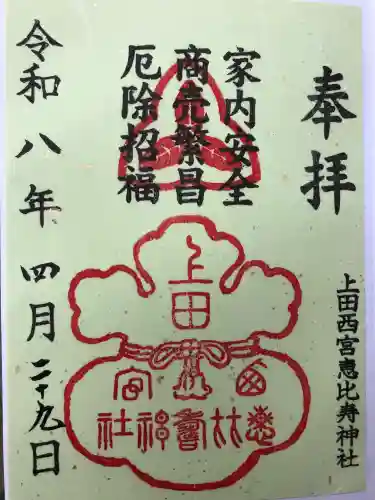 奉拝
上田西宮恵比寿神社
家内安全
商売繁昌
厄除招福
上田
西宮
惠比壽神社
令和八年四月二十九日